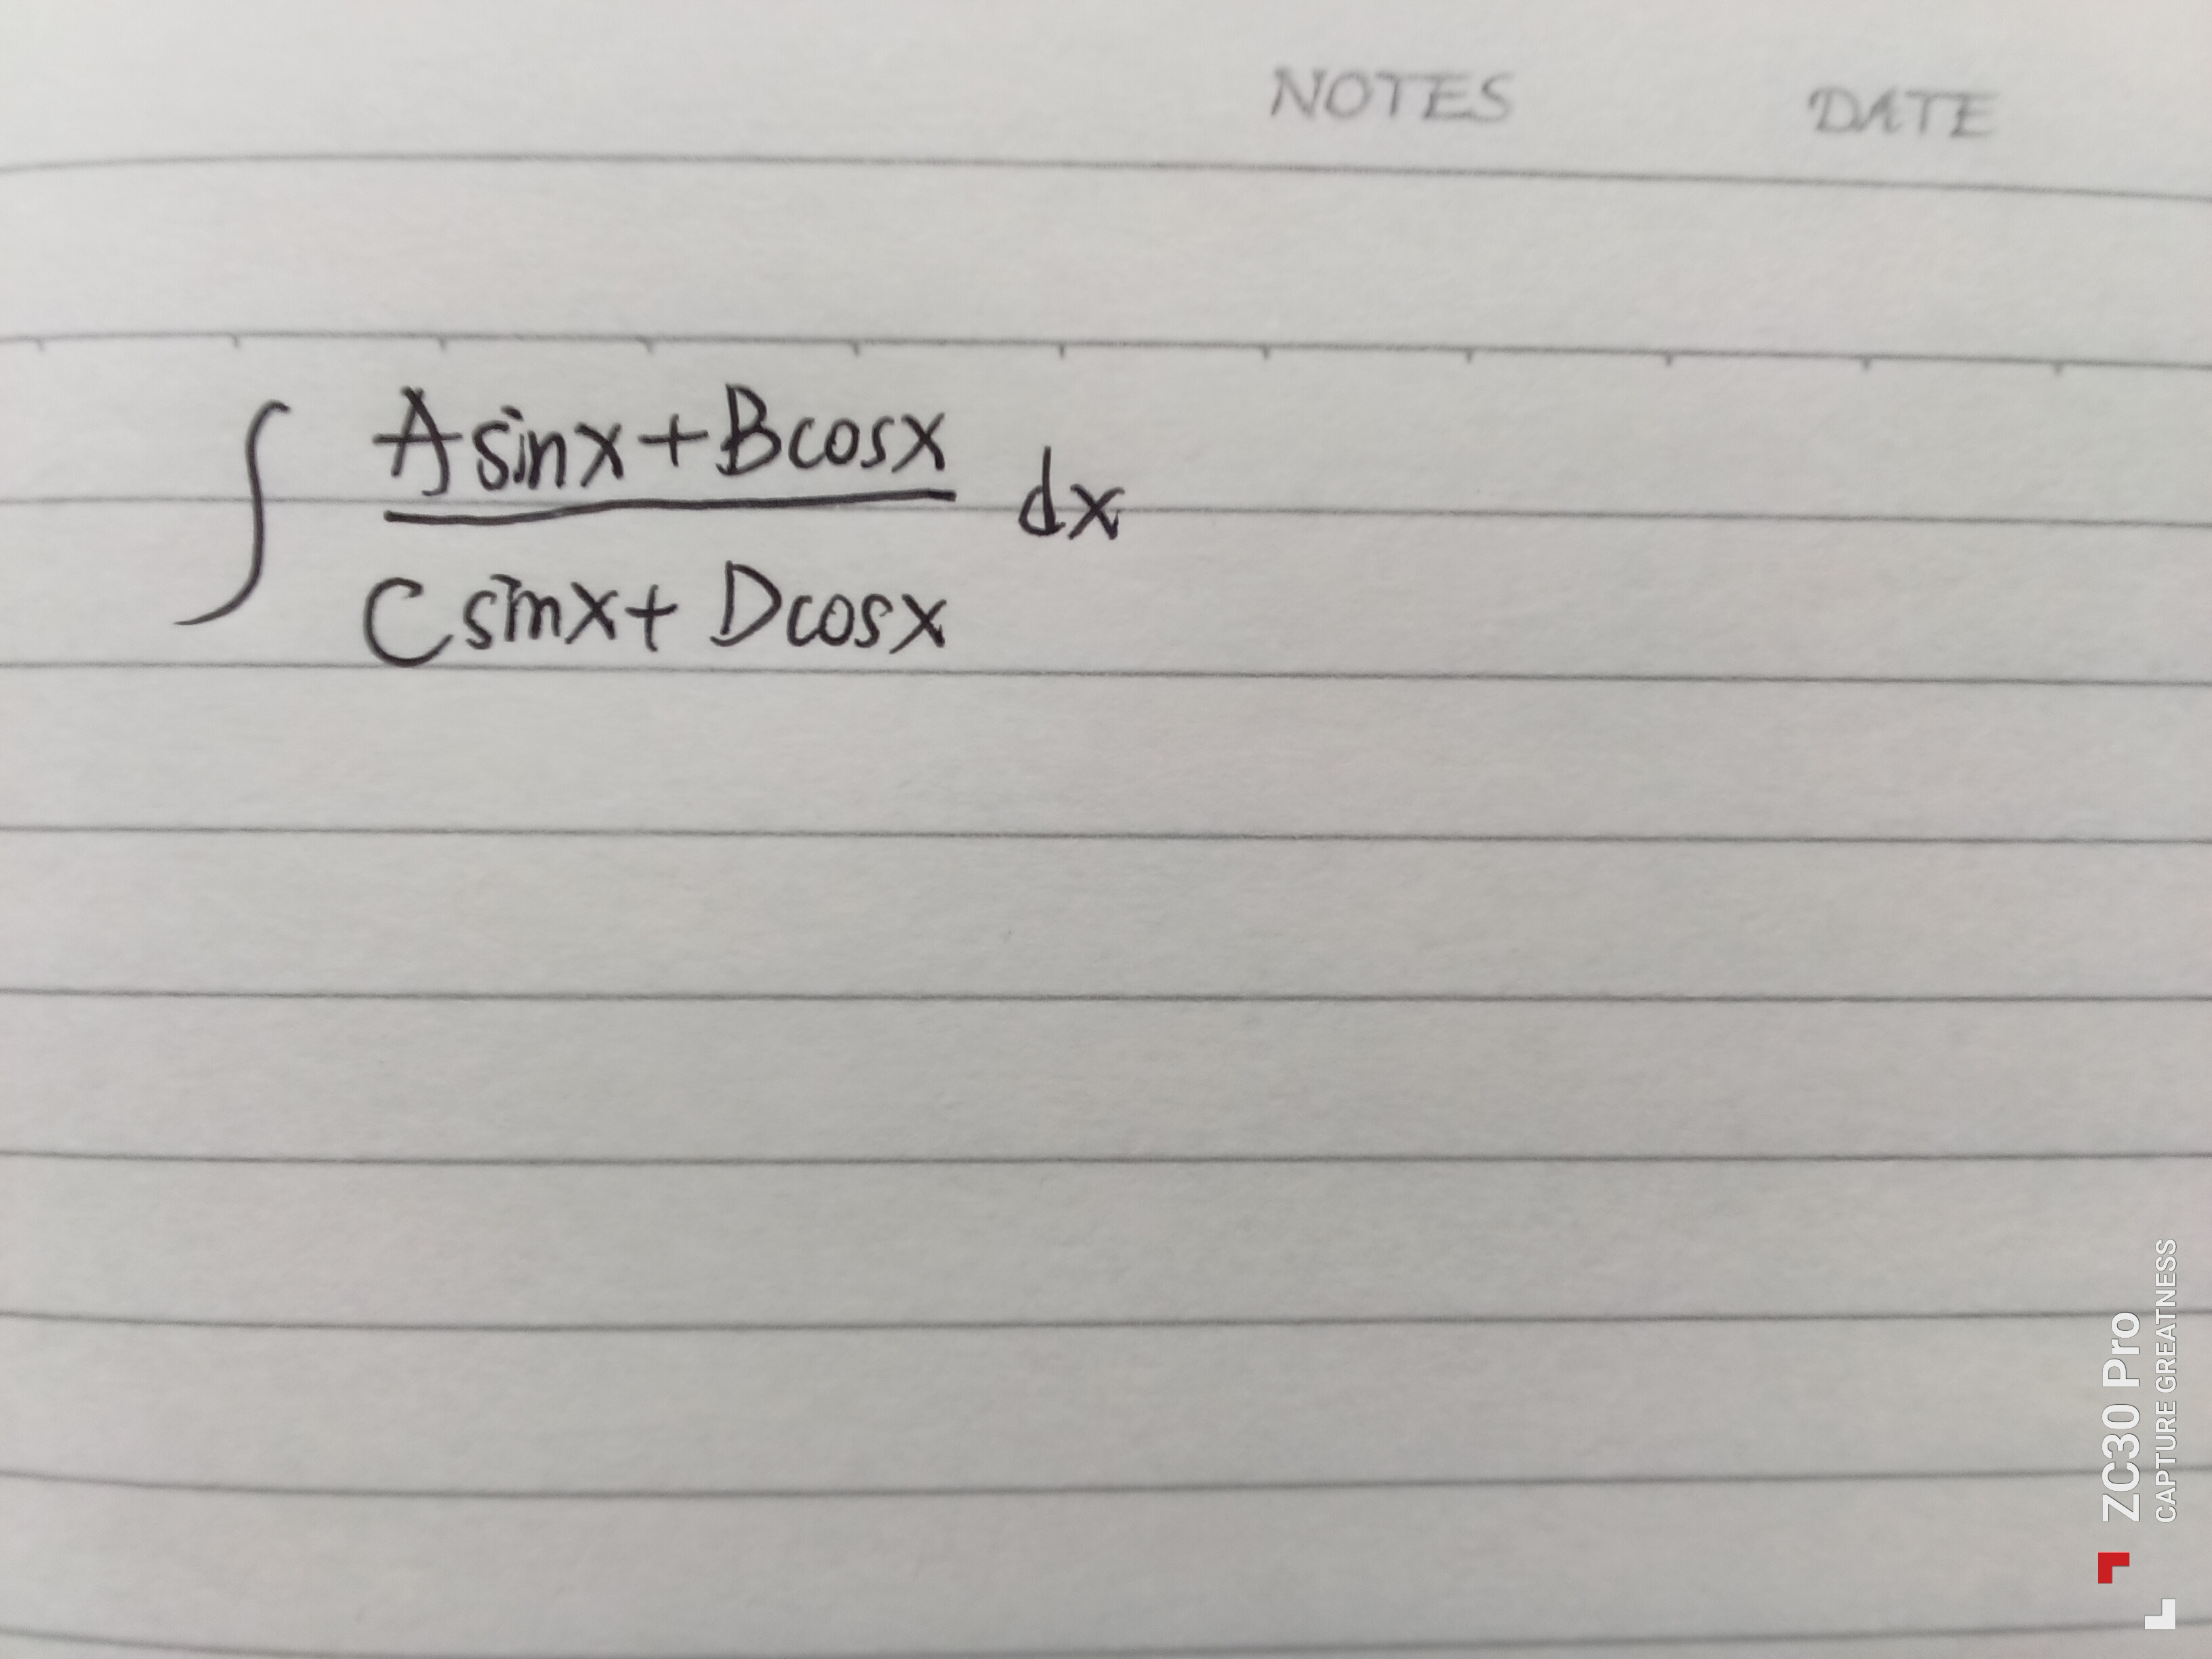 NOTES DATE
∫ Asinx+Bcosx / Csinx+Dcosx dx
ZC30 Pro
CAPTURE GREATNESS